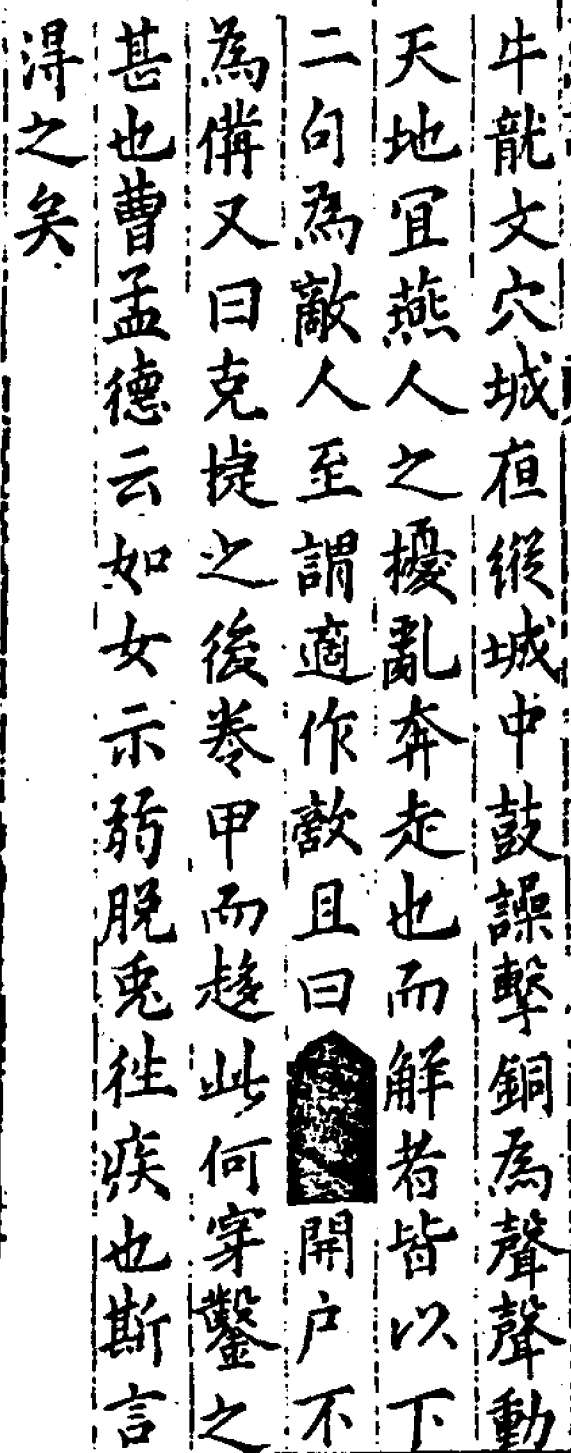 牛龍文穴城夜縱城中鼓譟擊銅為聲聲動
天地宜燕人之擾亂奔走也而解者皆以下
二句為敵人至謂適作敵且曰開户不
為備又曰克捷之後卷甲而趍此何穿鑿之
甚也曹孟德云如女示弱脫兎往疾也斯言
淂之矣